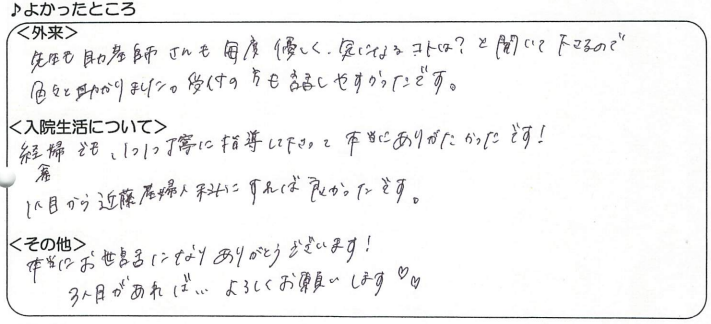 ♪よかったところ
<外来>
先生も助産師さんも毎度優しく、気になるコトは?と聞いて下さるので
色々と助かりました。受付の方も話しやすかったです。
<入院生活について>
経婦でも、1つ1つ丁寧に指導して下さって本当にありがたかったです!
1人目から近藤産婦人科にすれば良かったです。
<その他>
本当にお世話になりありがとうございます!
3人目があれば… よろしくお願いします♡♡